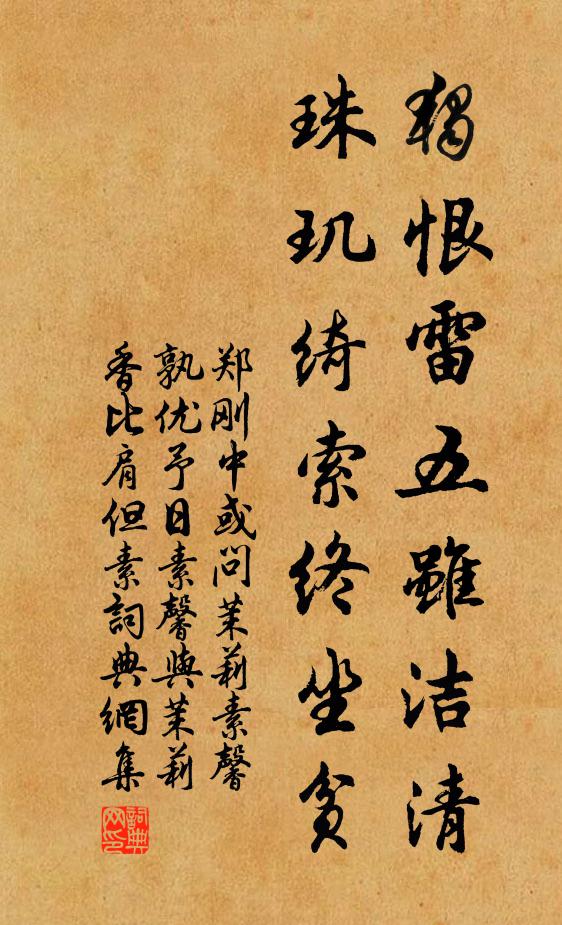 獨恨雷五雖洁清
珠玑绮索终坐贫
郑刚中或问茉莉素馨
孰优予日素馨與茉莉
香比肩但素詞典網集
詞典网印